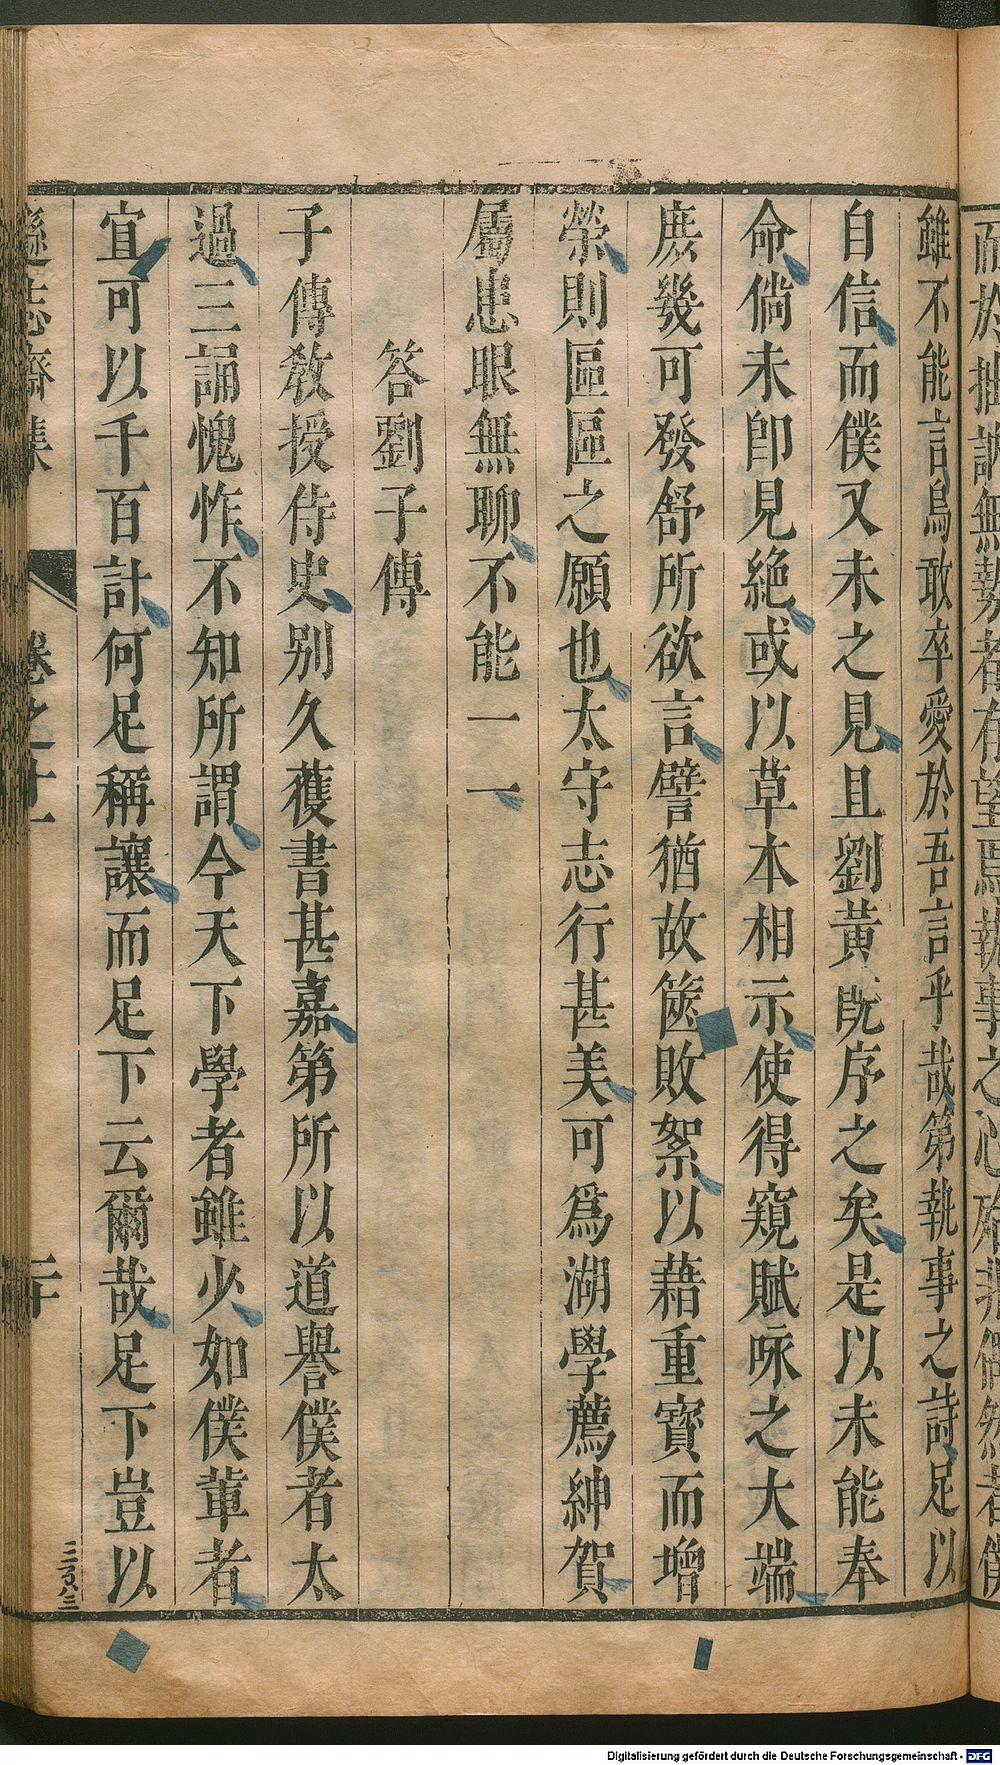 而於拙訥無勢者有望焉執事之心殆非偶然者僕
雖不能言烏敢卒愛於吾言乎哉第執事之詩足以
自信而僕又未之見且劉黃既序之矣是以未能奉
命倘未卽見絶或以草本相示使得窺賦咏之大端
庶幾可發舒所欲言譬猶故篋敗絮以藉重寳而增
榮則區區之願也太守志行甚美可爲湖學薦紳賀
屬患眼無聊不能一一
答劉子傳
子傳敎授侍史别久獲書甚嘉第所以道譽僕者太
過三誦愧怍不知所謂今天下學者雖少如僕軰者
宜可以千百計何足稱讓而足下云爾哉足下豈以
遜志齋集
卷之十一
二十
三百八三
Digitalisierung gefördert durch die Deutsche Forschungsgemeinschaft - DFG